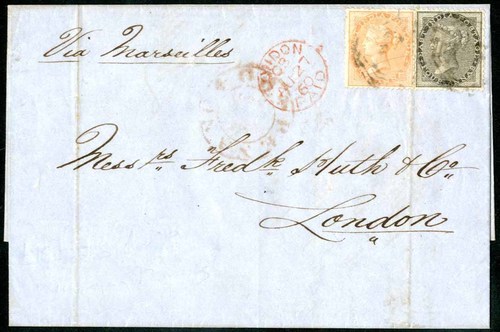 Via Marseilles
LONDON
60
PAID
Mess rs Fredk Huth & Co
London